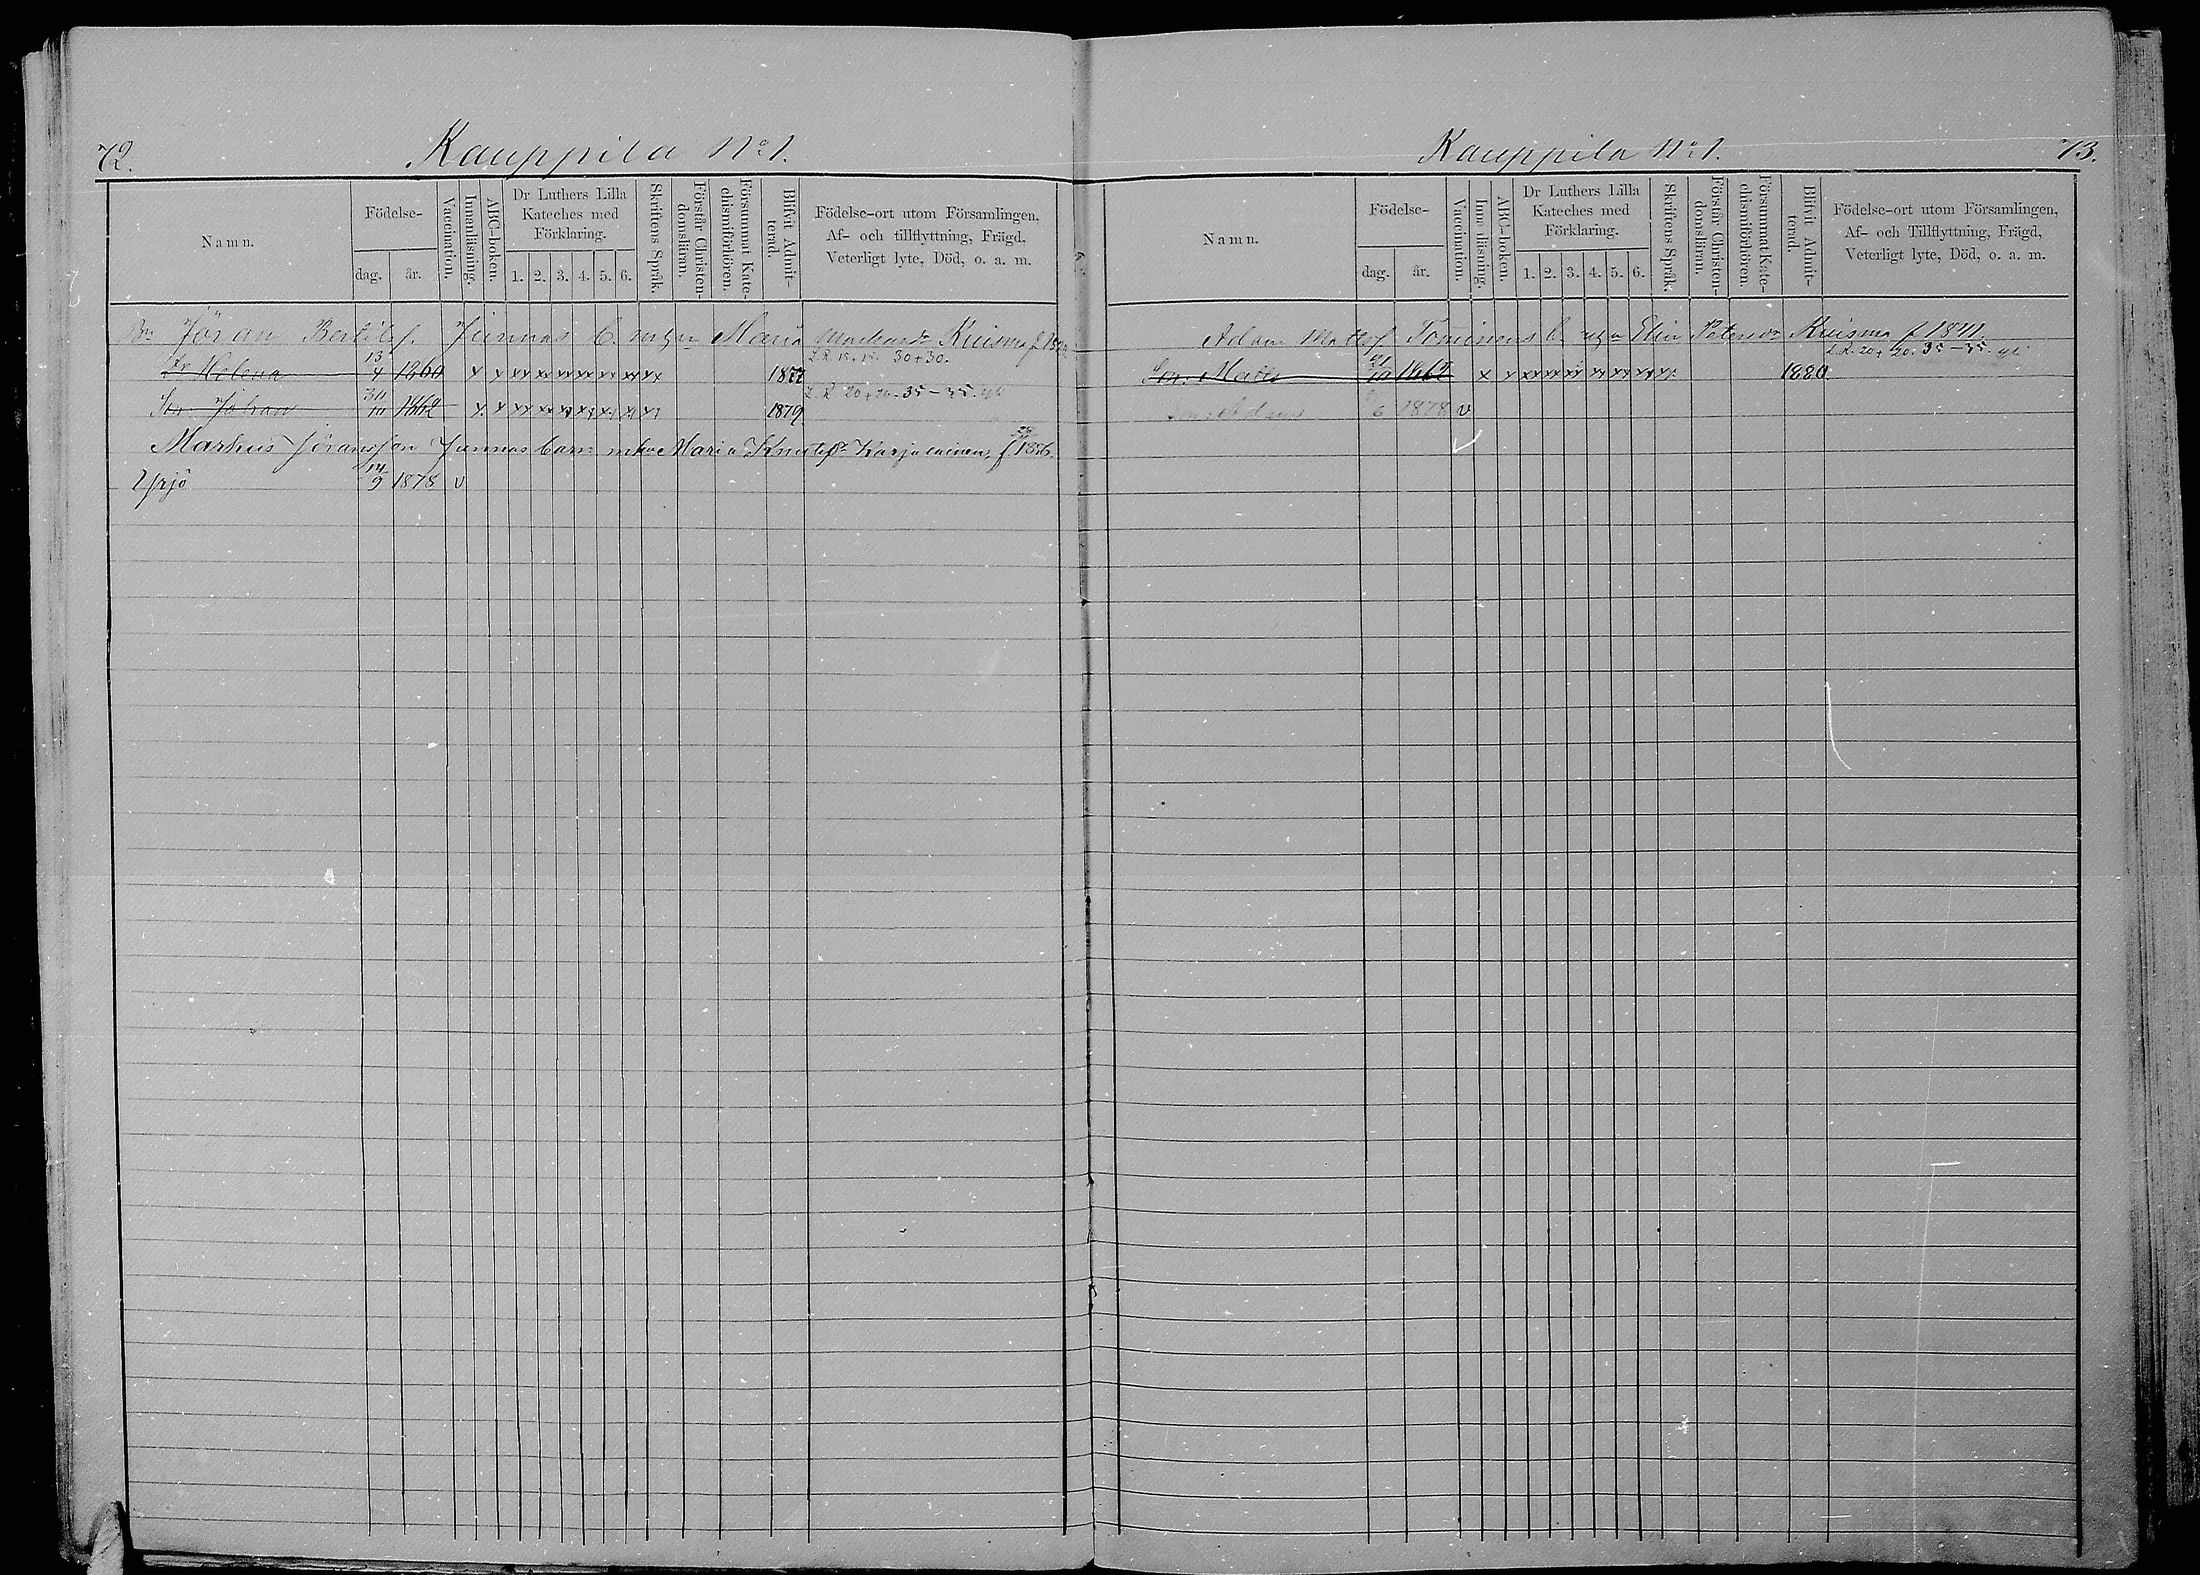 72.
Kauppila No 1.
Namn.
Födelse-
dag.
år.
Vaccination.
Innanläsning.
ABC-boken.
Dr Luthers Lilla
Kateches med
Förklaring.
1. 2. 3. 4. 5. 6.
Skriftens Språk.
Förstår Christen-
domsläran.
Försummat Kate-
chismiförhören.
Blifvit Admit-
terad.
Födelse-ort utom Församlingen,
Af- och tillflyttning, Frägd,
Veterligt lyte, Död, o. a. m.
Jöran Bertilsf. Junnas Maria Kuisma
30+30.
Dr Helena 13/4 1860 x x xx xx xx xx xx xx xx
Son Johan 30/10 1862 x x xx xx xx xx xx xx xx 1879
35-35
Markus Jöransson Junnas barn Maria Knutsdr Karjalainen f. 1856.
Yrjö 14/9 1878 v
Kauppila No 1.
73.
Namn.
Födelse-
dag.
år.
Vaccination.
Innanläsning.
ABC-boken.
Dr Luthers Lilla
Kateches med
Förklaring.
1. 2. 3. 4. 5. 6.
Skriftens Språk.
Förstår Christen-
domsläran.
Försummat Kate-
chismiförhören.
Blifvit Admit-
terad.
Födelse-ort utom Församlingen,
Af- och Tillflyttning, Frägd,
Veterligt lyte, Död, o. a. m.
Adam Mattsf Tominens b. Elin Petersdr Kuisma f 1841
20+20. 35-35
Son Matts x x xx xx xx xx xx xx xx 1880
Son Adam 6 1878 v